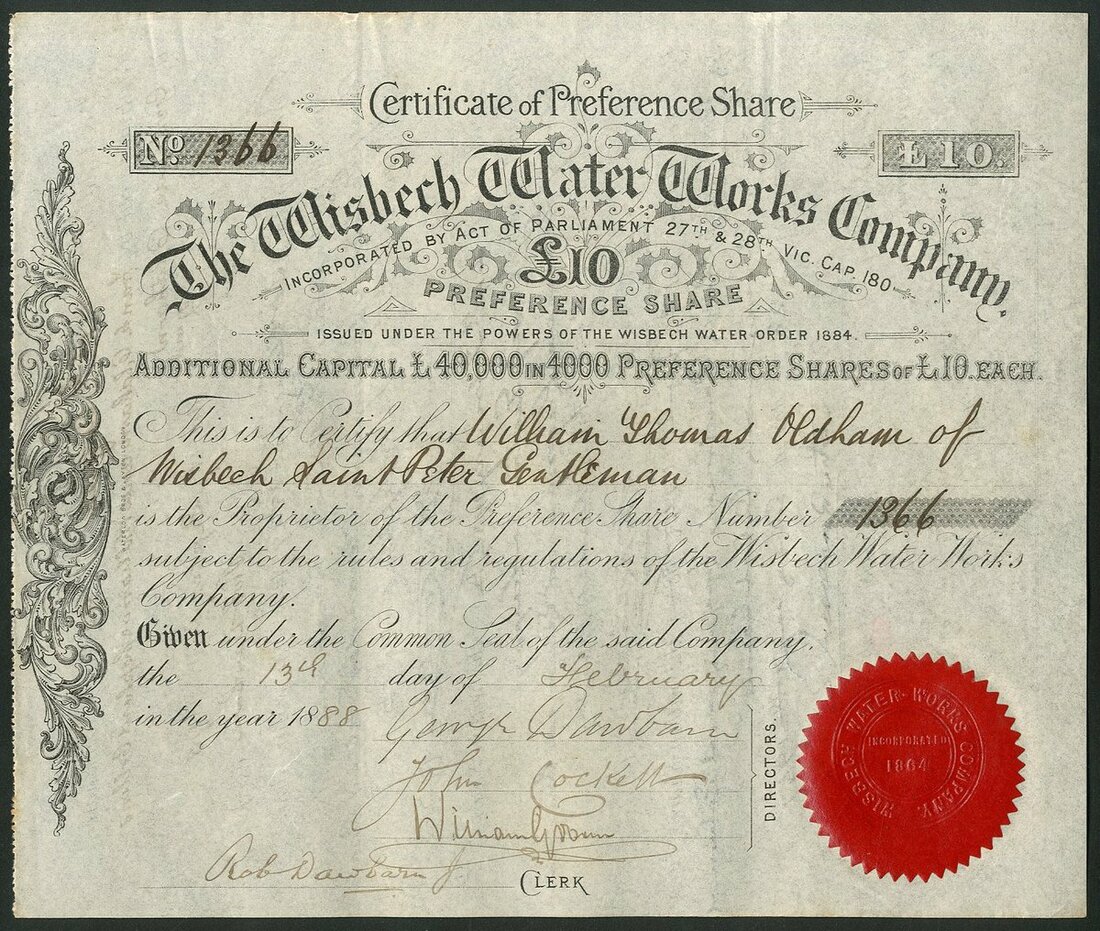 Certificate of Preference Share
No. 1366
£10.
The Wisbech Water Works Company.
INCORPORATED BY ACT OF PARLIAMENT 27TH & 28TH VIC. CAP. 180
£10
PREFERENCE SHARE
ISSUED UNDER THE POWERS OF THE WISBECH WATER ORDER 1884.
ADDITIONAL CAPITAL £40,000 IN 4000 PREFERENCE SHARES OF £10. EACH.
This is to Certify that William Thomas Oldham of
Wisbech Saint Peter Gentleman
is the Proprietor of the Preference Share Number 1366
subject to the rules and regulations of the Wisbech Water Works
Company.
Given under the Common Seal of the said Company.
the 13th day of February
in the year 1888
George Dawbarn
John Cockett
William
DIRECTORS.
Rob Dawbarn Jr
CLERK
WISBECH WATER-WORKS COMPANY.
INCORPORATED
1864